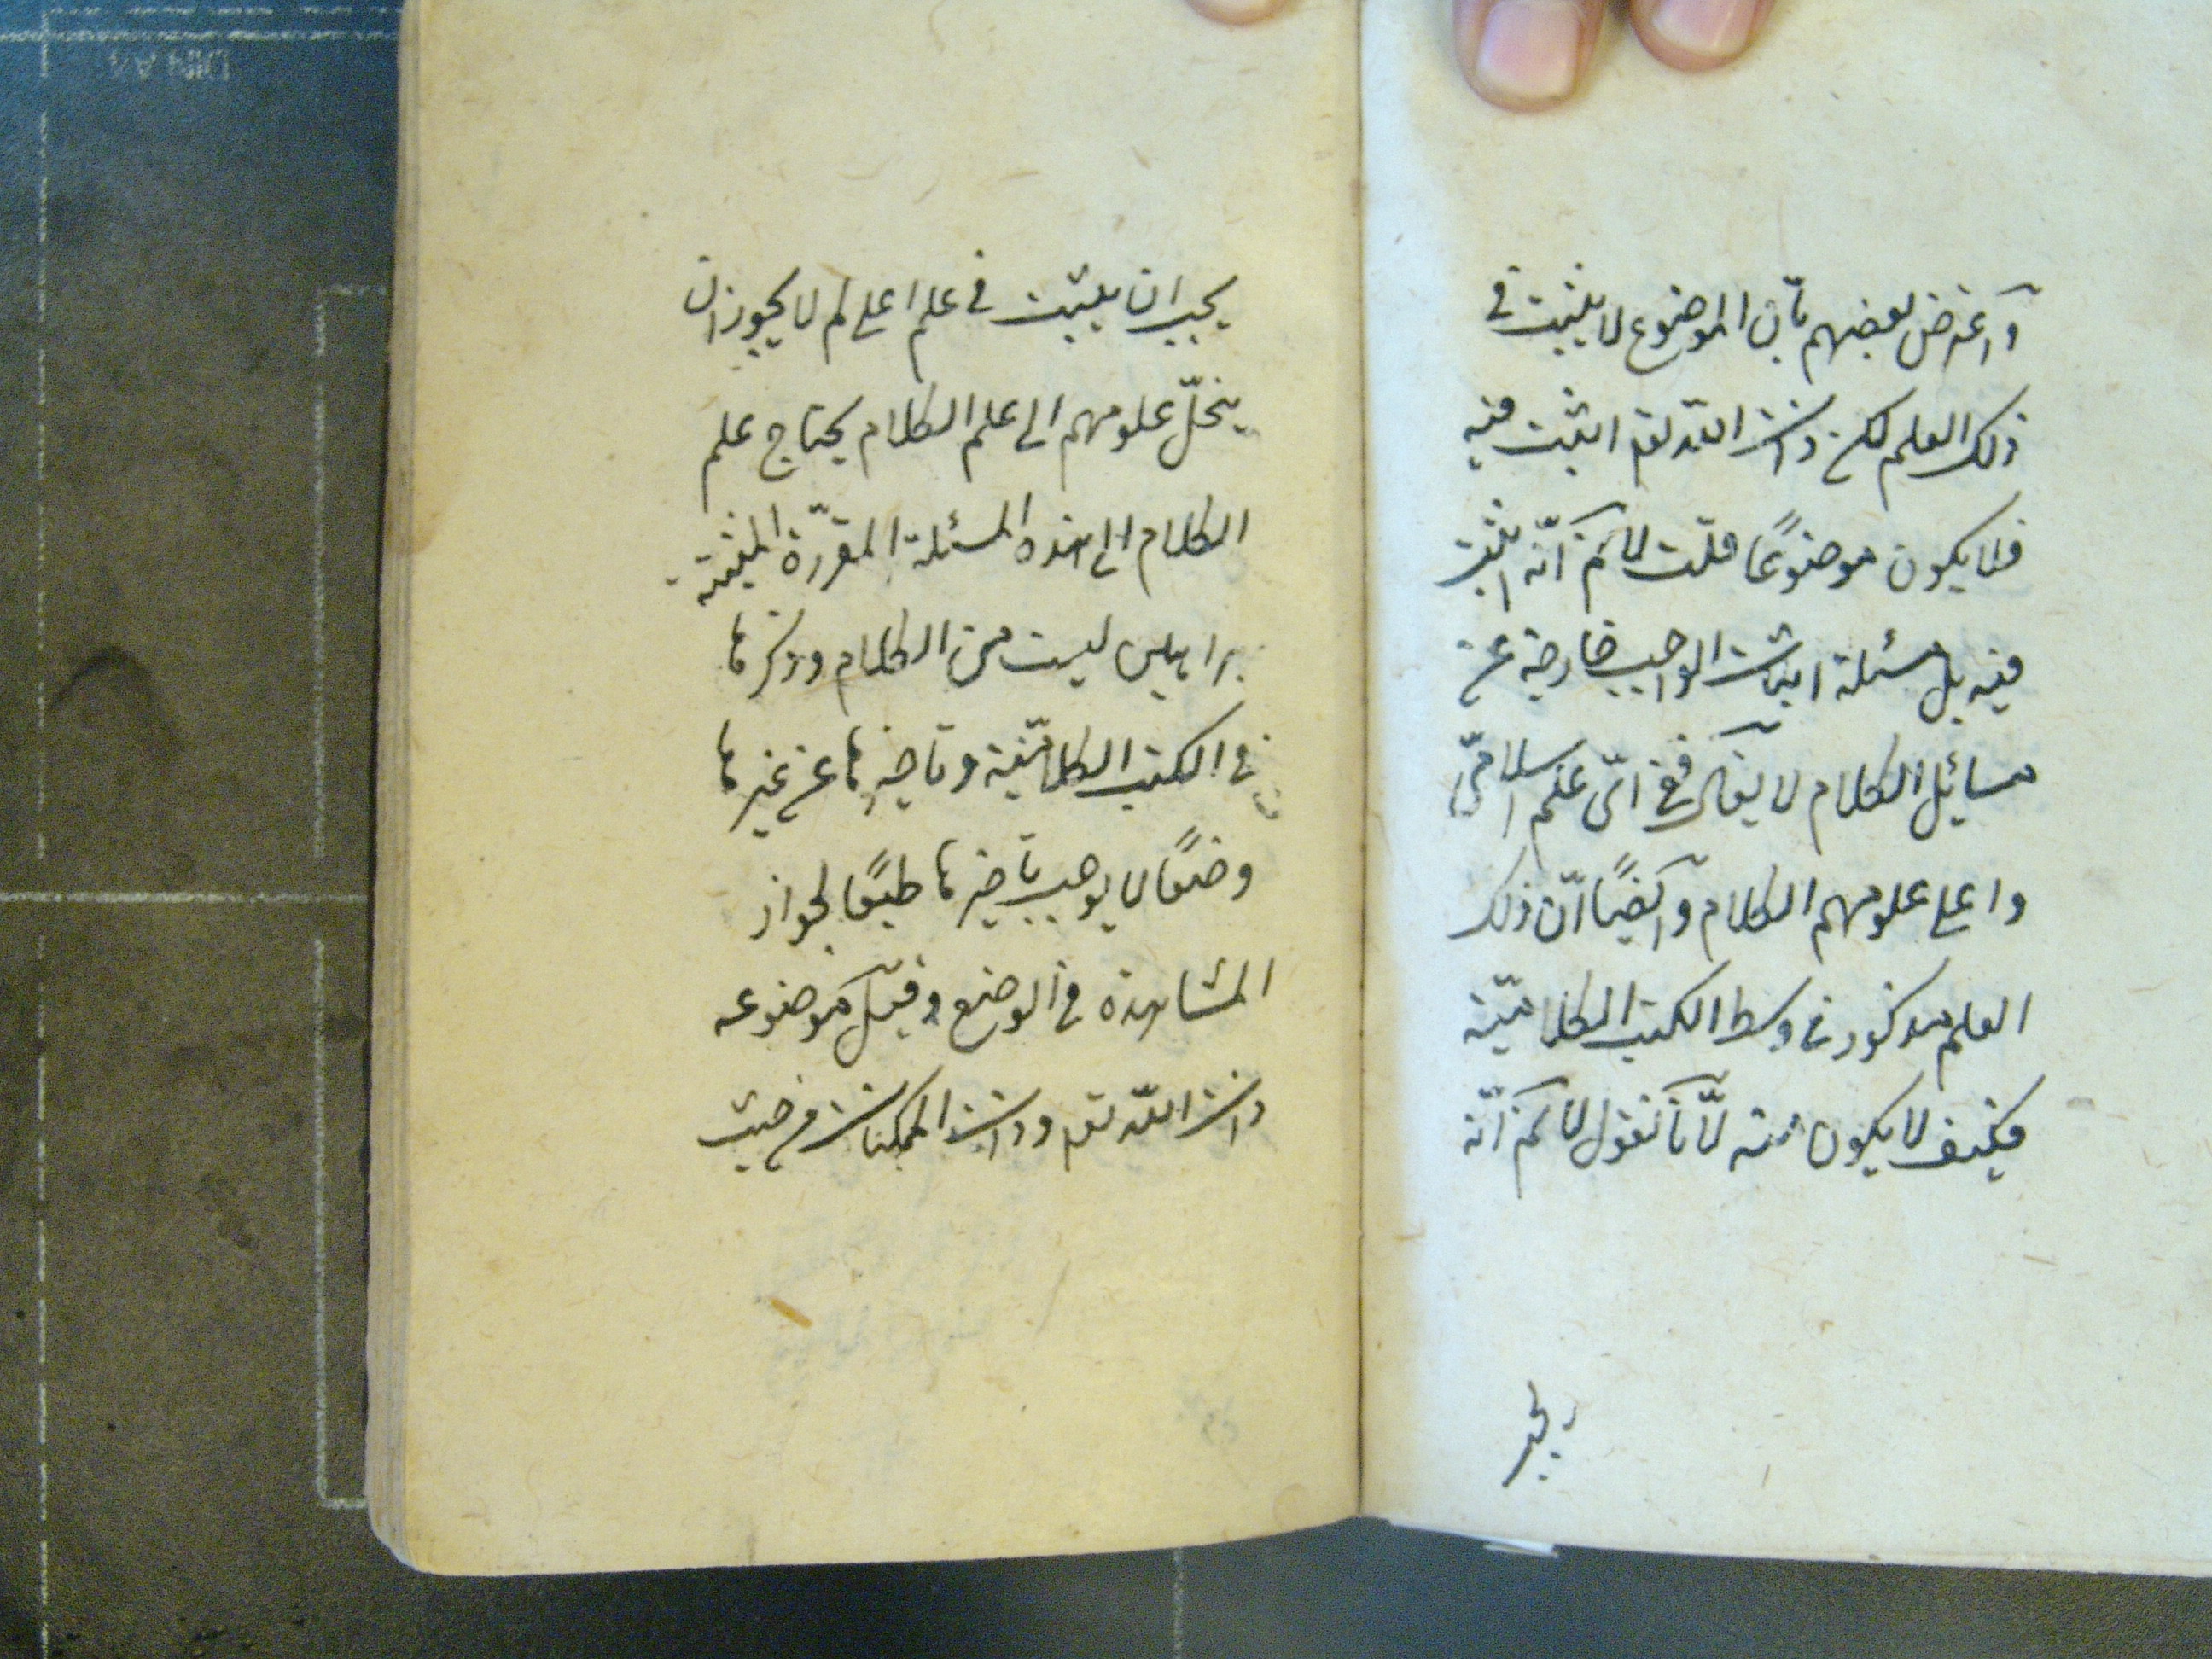 واعترض بعضهم بأن الموضوع لا يثبت في
ذلك العلم لكن ذات الله تعم اثبت فيه
فلا يكون موضوعًا قلت لا نم انّه اثبت
فيه بل مسئلة اثبات الواجب خارجة عن
مسائل الكلام لا يقال ففي ائّ علم اسلاميّ
واعلى علومهم الكلام وايضًا انّ ذلك
العلم مذكور في وسط الكتب الكلاميّة
فكيف لا يكون منه لانّا نقول لا نم انّه
يجب
يجب ان يثبت في علم اعلى لم لا يجوز ان
ينحلّ علومهم الى علم الكلام يحتاج علم
الكلام الى هذه المسئلة المقرّرة المثبتة
براهين ليست من الكلام وذكرها
في الكتب الكلاميّة وتاخيرها عن غيرها
وضعًا لا يوجب تاخيرها طبعًا لجواز
المشاهدة في الوضع وقيل موضوعه
ذات الله تعم وذات الممكنات من حيث